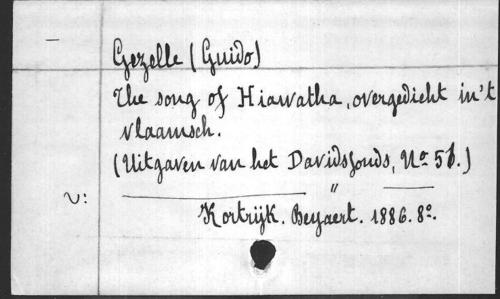 Gezelle (Guido)
The song of Hiawatha, overgedicht in't
vlaamsch.
(Uitgaven van het Davidsfonds, No 56.)
"
v:
Kortrijk. Beyaert. 1886. 8º.